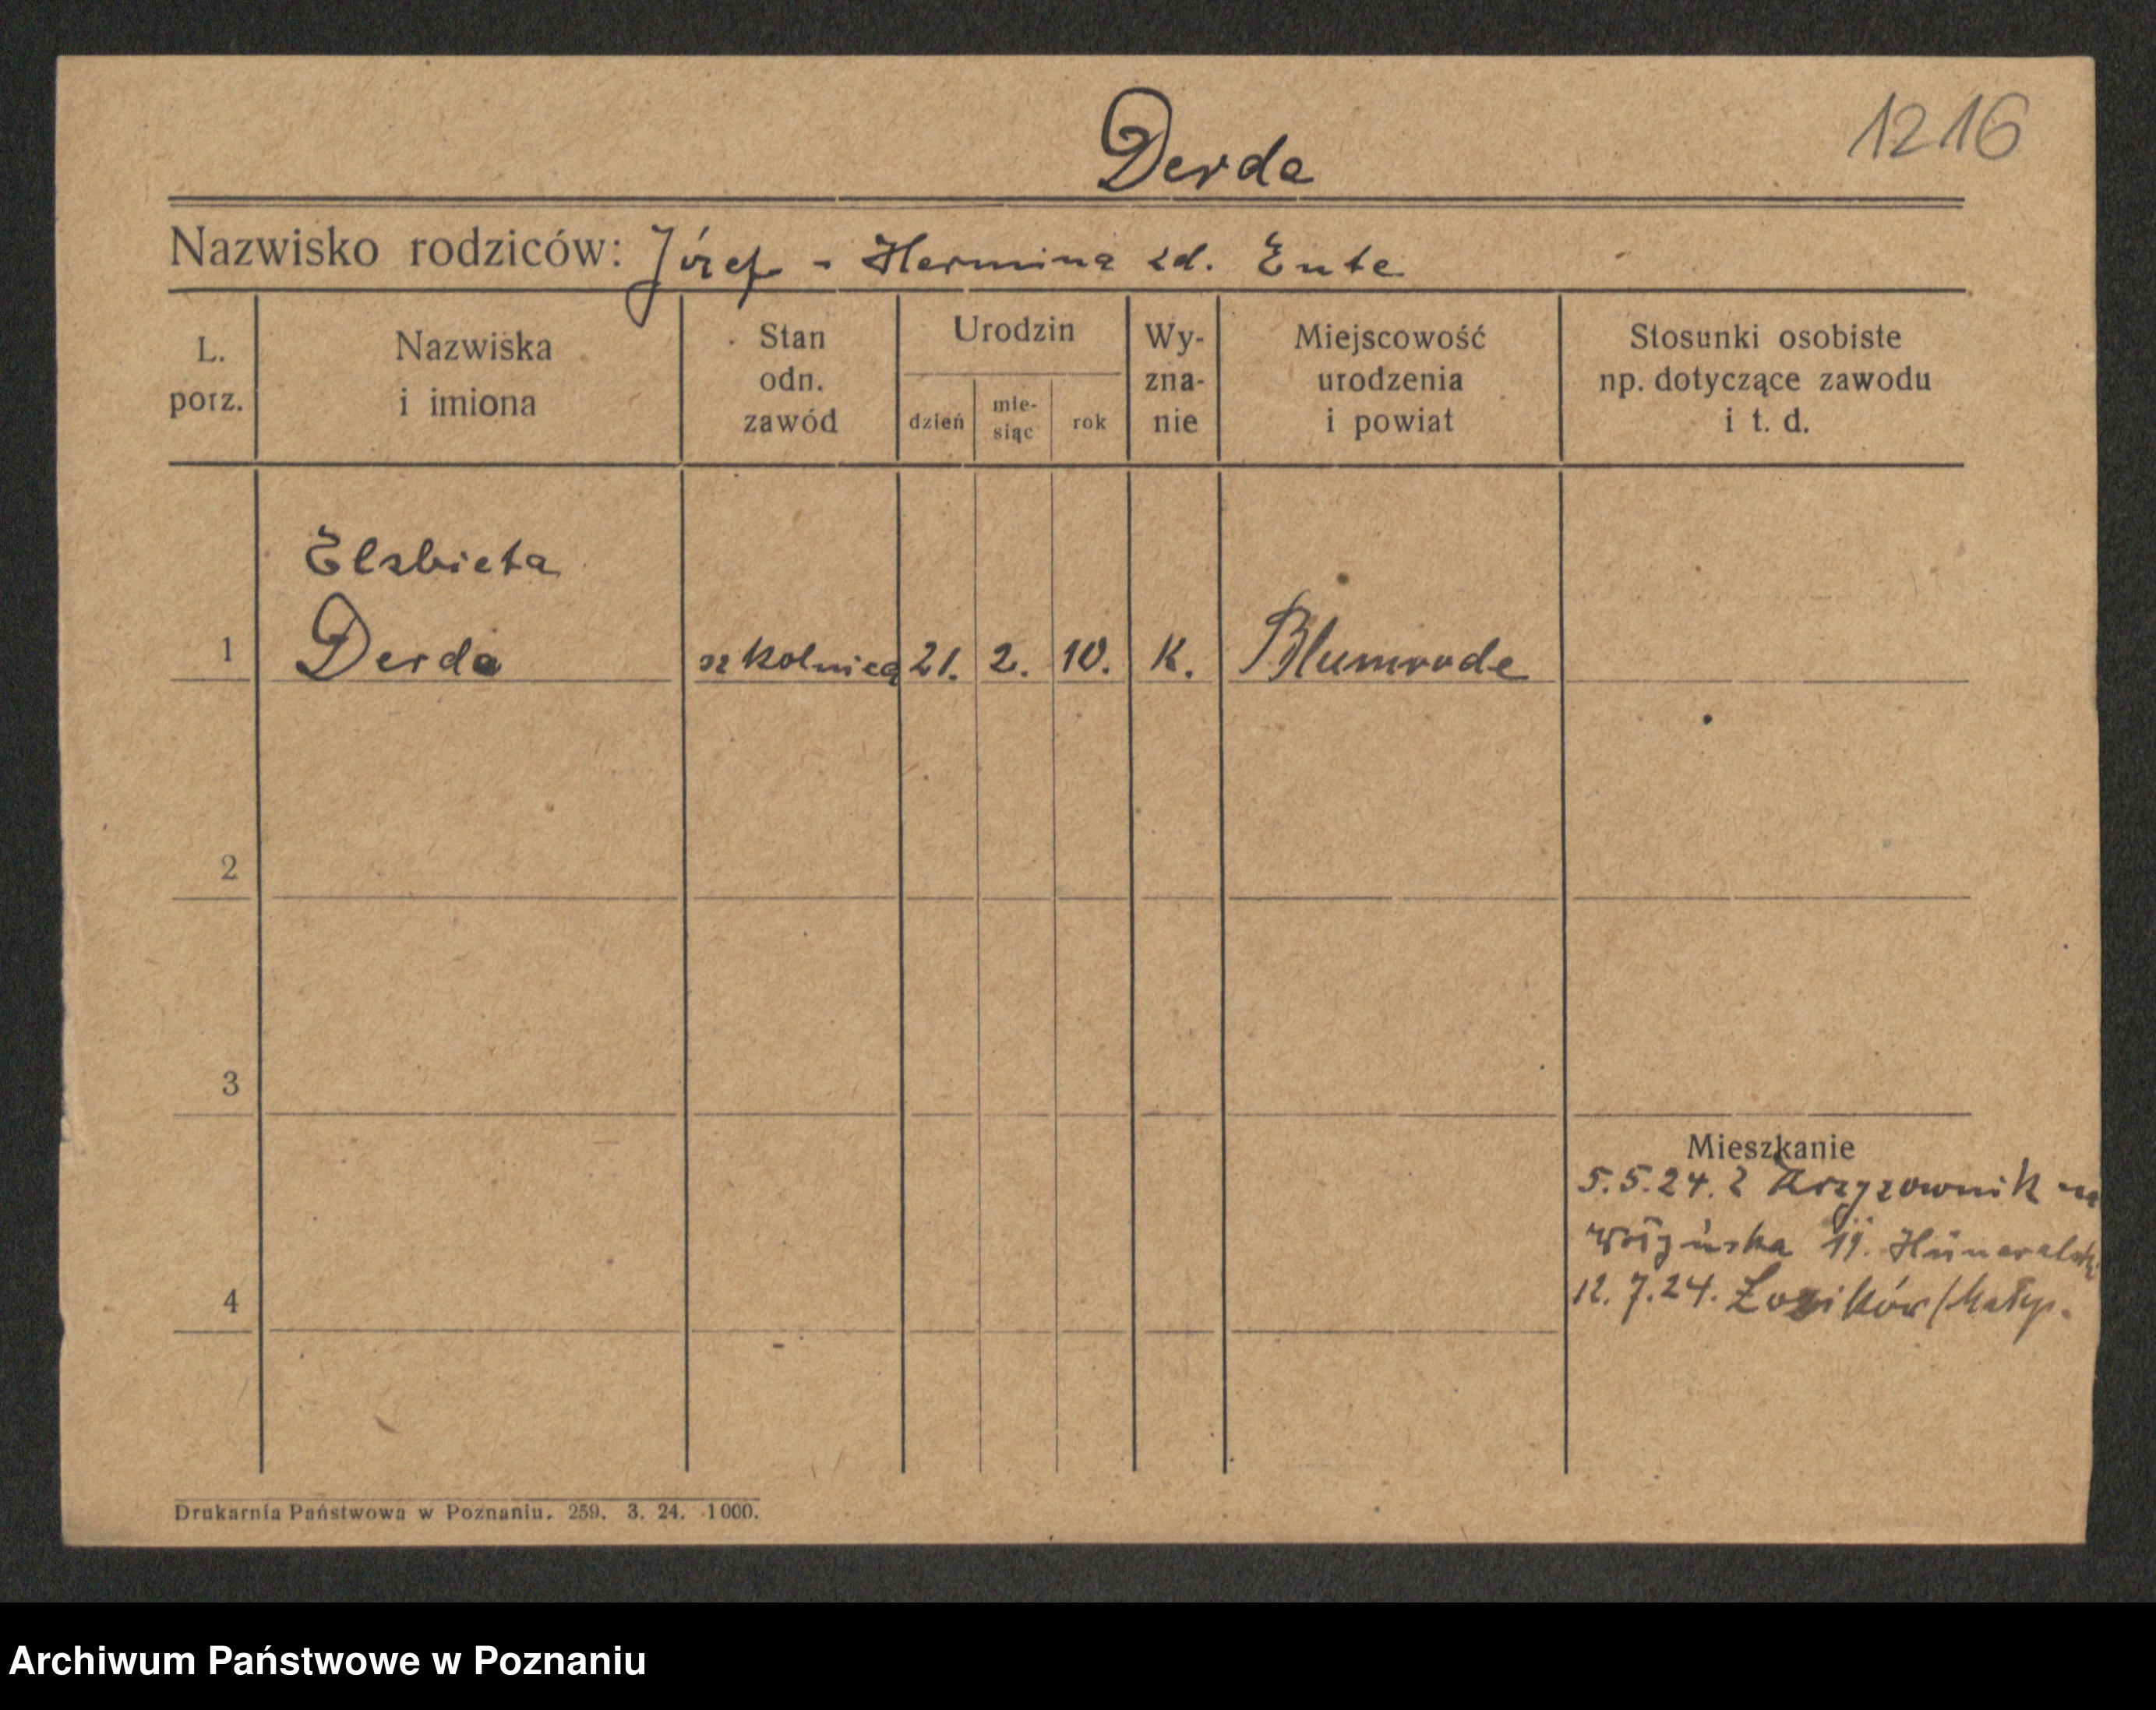 Derda
1216
Nazwisko rodziców: Józef - Hermina zd. Ente
L. porz.
Nazwiska i imiona
Stan odn. zawód
Urodzin
dzień
mie-
siąc
rok
Wy-
zna-
nie
Miejscowość
urodzenia
i powiat
Stosunki osobiste
np. dotyczące zawodu
i t. d.
Elzbieta
1 Derda szkolnica 21. 2. 10. K. Blumrode
2
3
Mieszkanie
5.5.24. z Krzyzownik na
11.
4
12.7.24.
Drukarnia Państwowa w Poznaniu. 259. 3. 24. 1000.
Archiwum Państwowe w Poznaniu